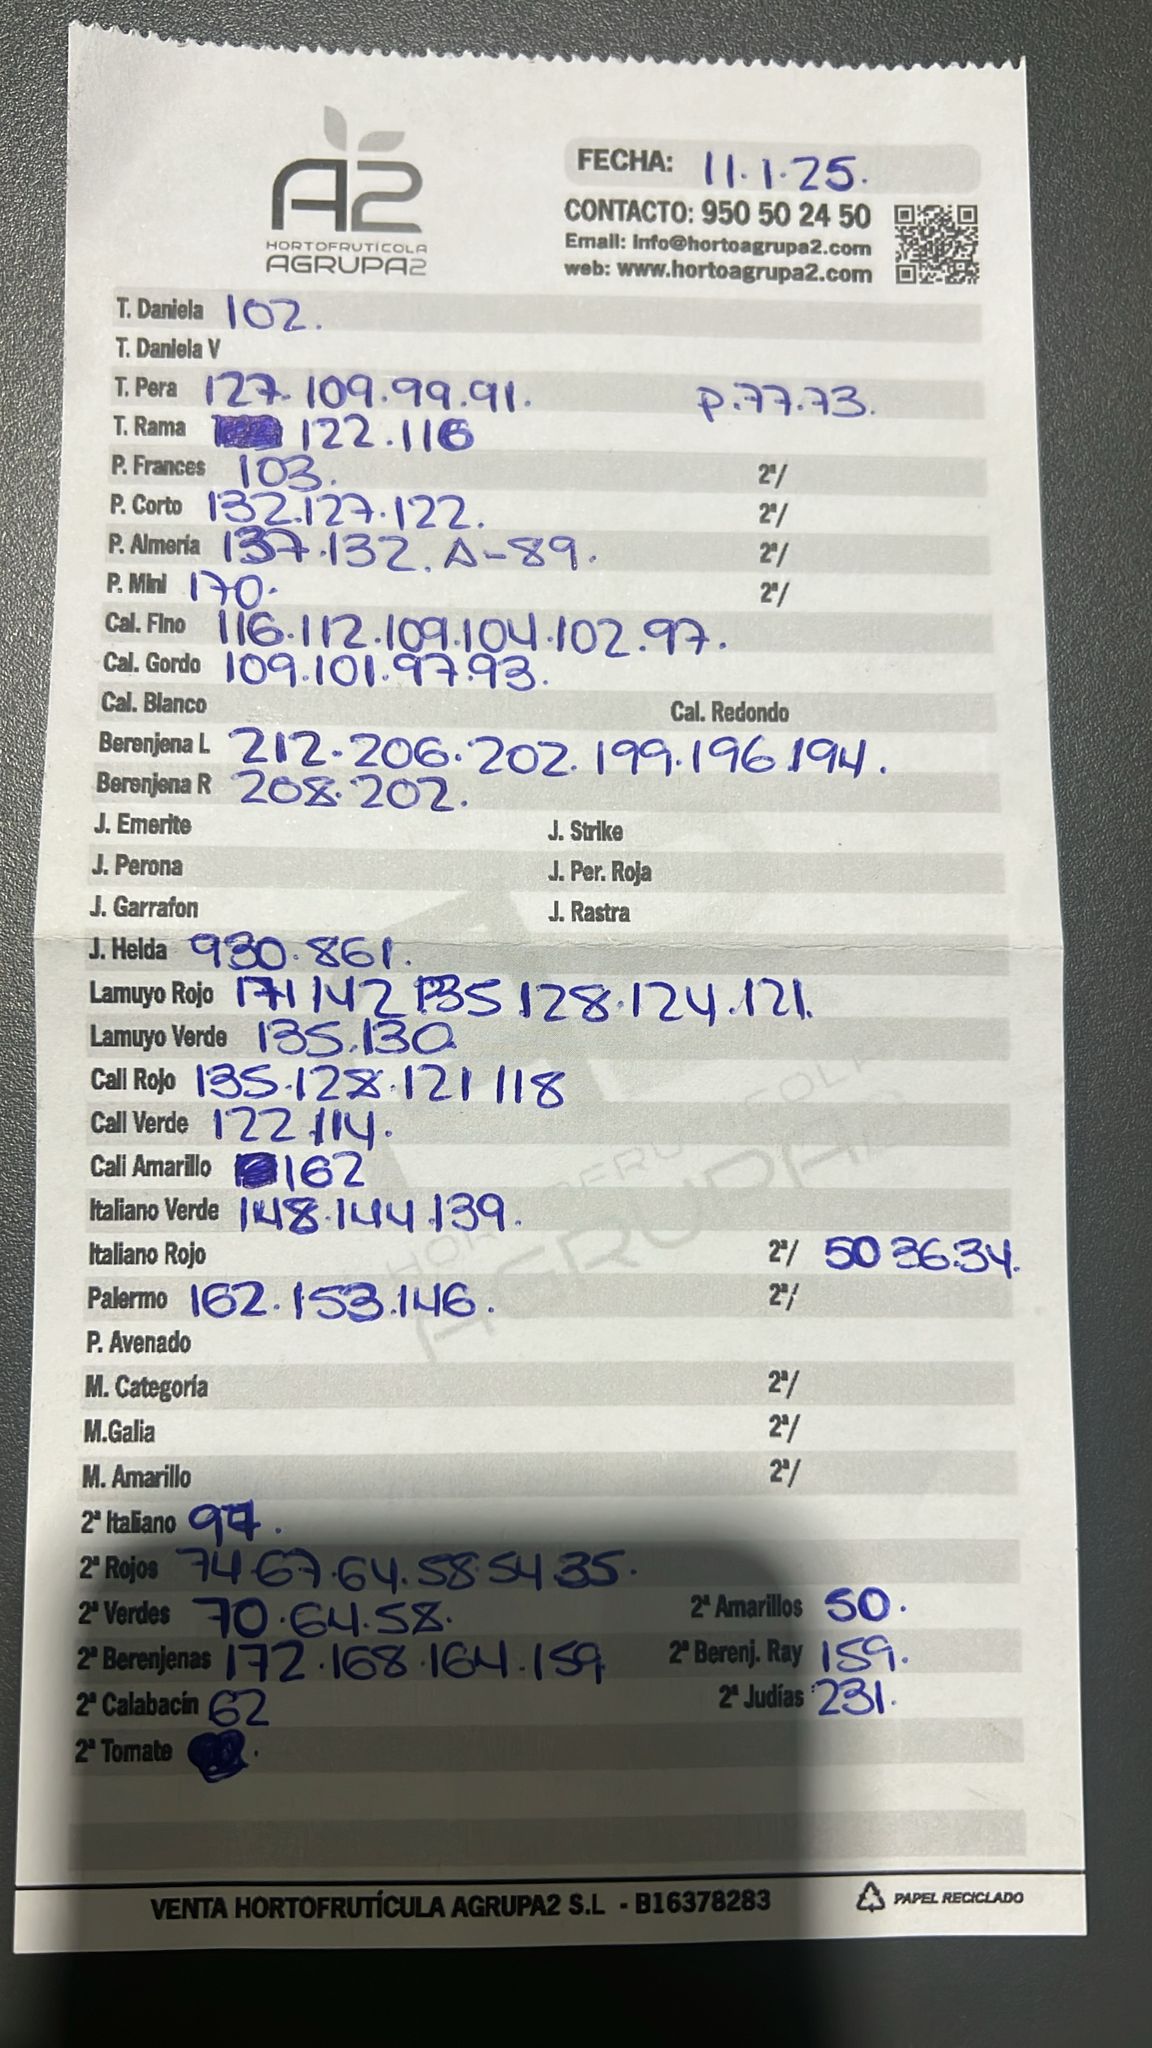 A2
HORTOFRUTÍCOLA
AGRUPA2
FECHA: 11.1.25.
CONTACTO: 950 50 24 50
Email: Info@hortoagrupa2.com
web: www.hortoagrupa2.com
T. Daniela 102.
T. Daniela V
T. Pera 127.109.99.91. P.77.73.
T. Rama 122.116
P. Frances 103. 2ª/
P. Corto 132.127.122. 2ª/
P. Almería 137.132. A-89. 2ª/
P. Mini 170. 2ª/
Cal. Fino 116.112.109.104.102.97.
Cal. Gordo 109.101.97.93.
Cal. Blanco Cal. Redondo
Berenjena L 212.206.202.199.196.194.
Berenjena R 208.202.
J. Emerite J. Strike
J. Perona J. Per. Roja
J. Garrafon J. Rastra
J. Helda 930.861.
Lamuyo Rojo 171 142 135 128.124.121.
Lamuyo Verde 135.130
Cali Rojo 135.128.121 118
Cali Verde 122.114.
Cali Amarillo 162
Italiano Verde 148.144.139.
Italiano Rojo 2ª/ 50 36.34.
Palermo 162.153.146. 2ª/
P. Avenado
M. Categoría 2ª/
M.Galia 2ª/
M. Amarillo 2ª/
2ª Italiano 97.
2ª Rojos 74.67.64.58.54.35.
2ª Verdes 70.64.58. 2ª Amarillos 50.
2ª Berenjenas 172.168.164.159 2ª Berenj. Ray 159.
2ª Calabacín 62 2ª Judías 231.
2ª Tomate
VENTA HORTOFRUTÍCULA AGRUPA2 S.L - B16378283
PAPEL RECICLADO